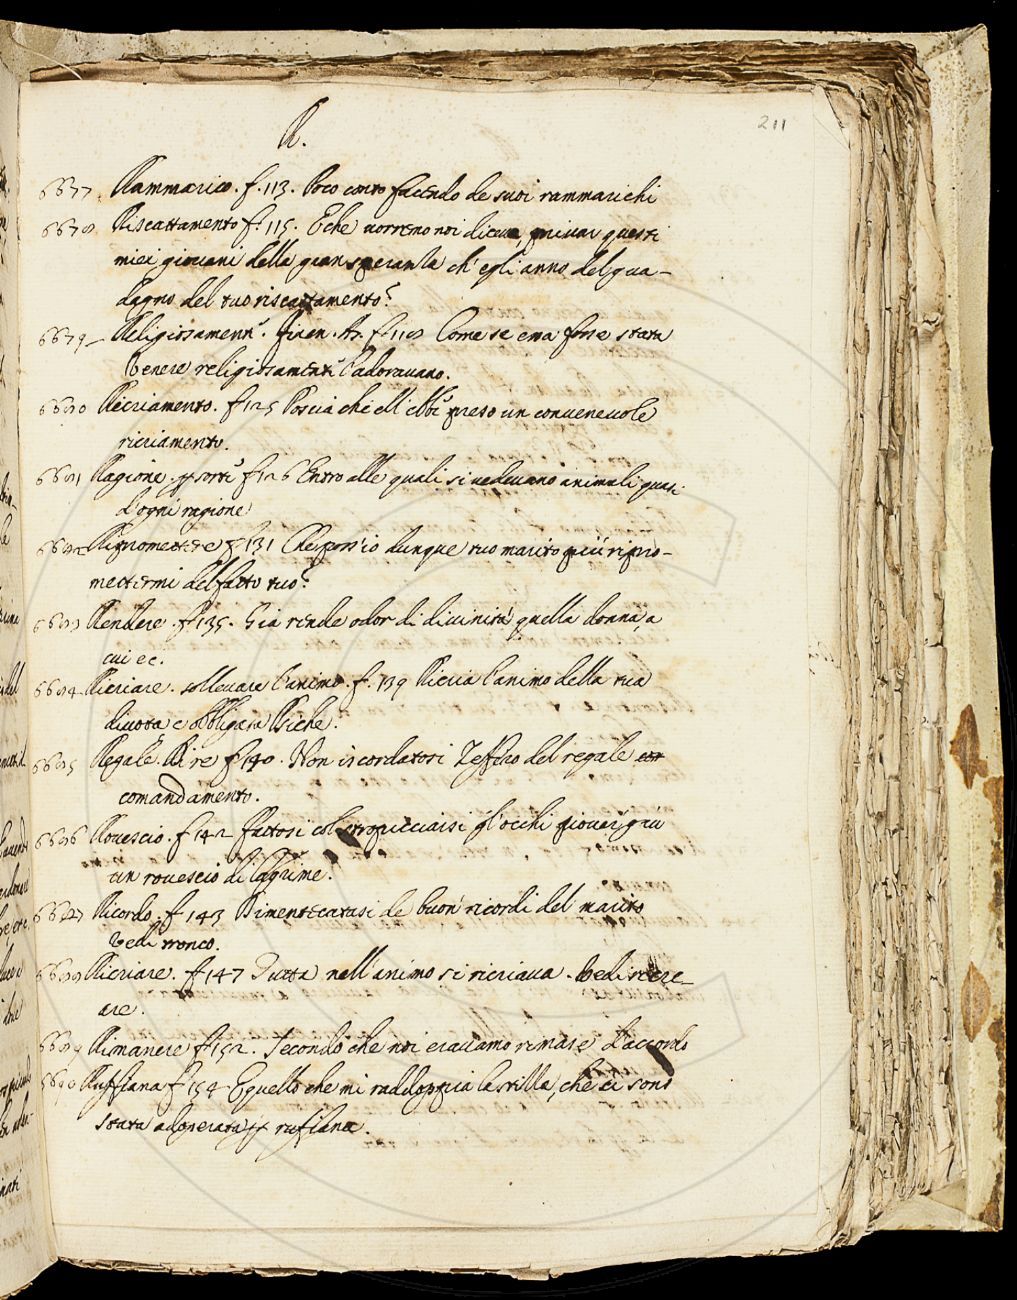 211
R.
6677. Rammarico. f. 113. Poco conto facendo de suoi rammarichi
6678. Riscattamento f. 115. E che vorremo noi privar questi
miei giovani della gran speranza ch'egli anno del gua-
dagno del tuo riscattamento?
6679. f. 118 Come se ema forse stata
Venere l'adoravano.
6680 Ricriamento. f. 125 Poscia che ell' ebbe preso un convenevole
ricriamento.
6681 Ragione f. 126 Entro alle quali si vedevano animali quasi
d'ogni ragione
6682 Ripromettere f. 131 Che poss'io dunque tuo marito più ripro-
mettermi del fatto tuo?
6683 Rendere. f. 135. Gia rende odor di divinità quella donna, a
cui ec.
6684 Ricriare. sollevare l'animo. f. 139 Ricria l'animo della tua
divota e obbligata Psiche.
6685 Regale. Di re f. 140. Non iscordatosi Zeffiro del regale
comandamento.
6686 Rovescio. f. 142 fattosi col stropicciarsi gl'occhi piover giu
un rovescio di lagrime.
6687 Ricordo. f. 143 Dimenticatasi de' buon' ricordi del marito
Vedi tronco.
6688 Ricriare. f. 147 Tutta nell'animo si ricriava. Vedi recre-
are.
6689 Rimanere f. 152. Secondo che noi eravamo rimase d'accordo
6690 Ruffiana f. 154 E quello che mi raddoppia la stilla, che ci sono
stata adoperata ruffiana.